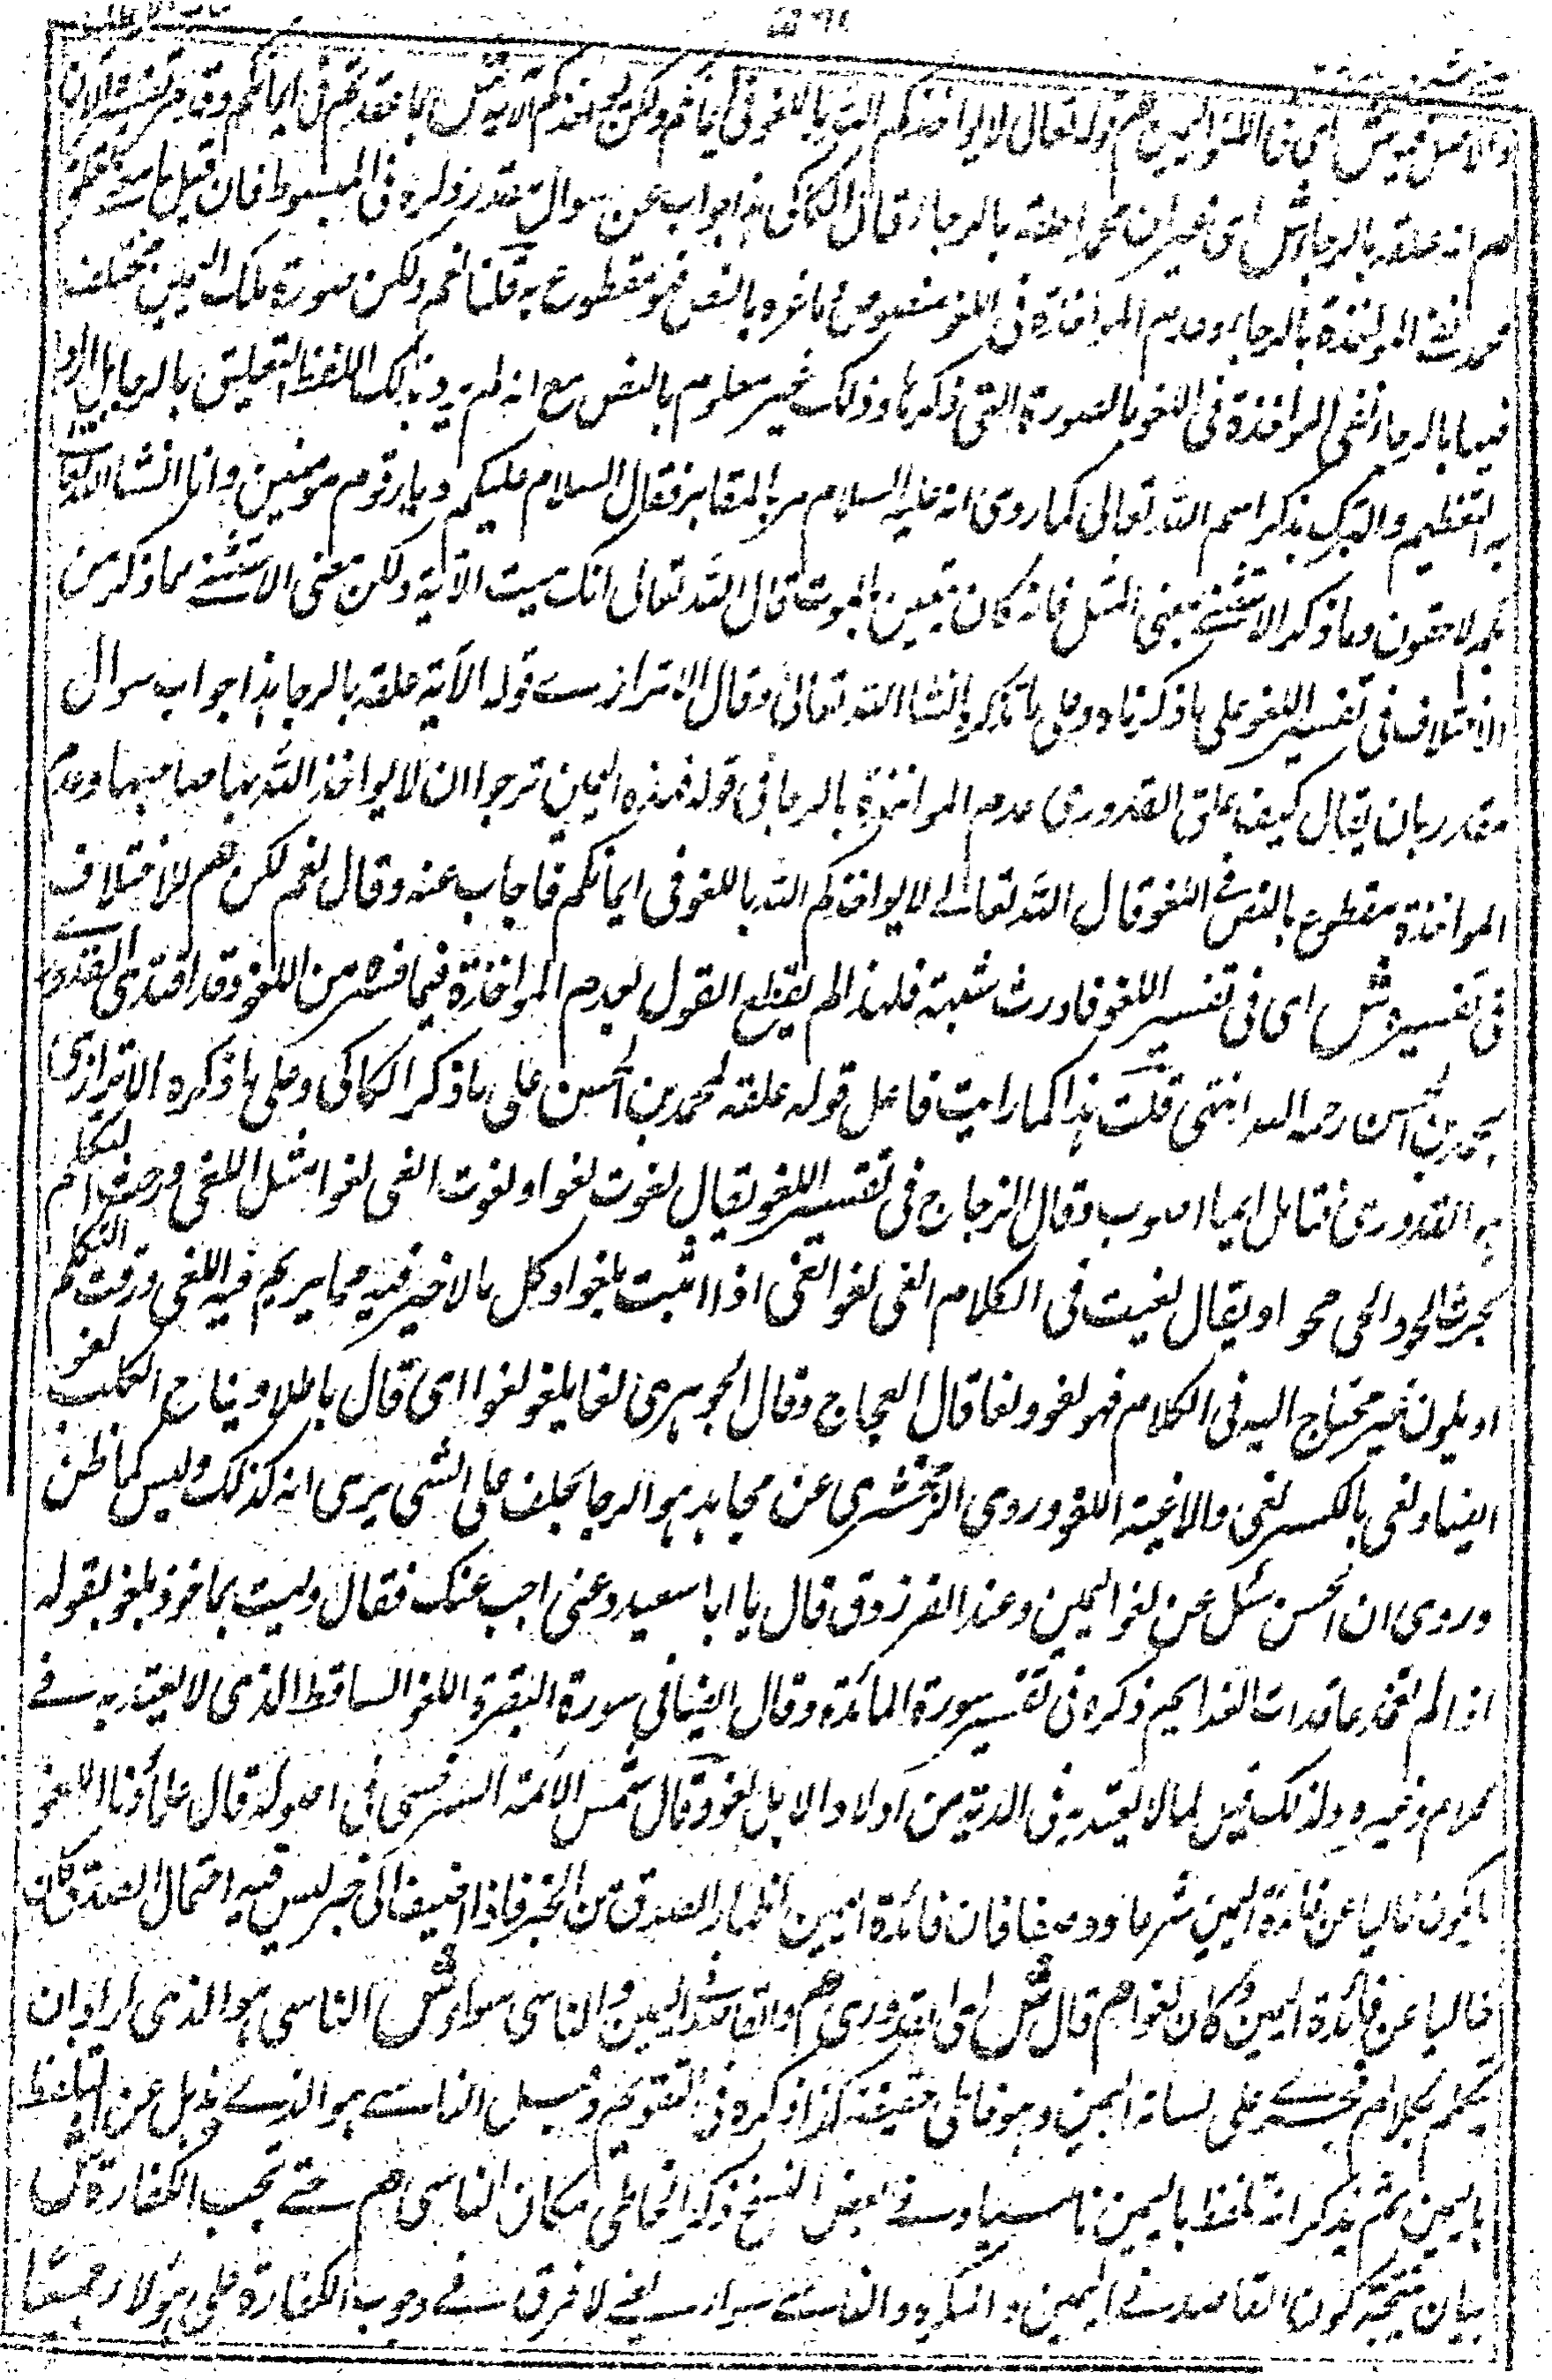 والاصل فيه ش اى فى اللغو اليمين هم قوله تعالى لا يواخذكم الله باللغو فى ايمانكم ولكن يواخذكم الآية ش بما عقدتم فى ايمانكم وقد مر تفسيره الآن
هم انه علقه بالرجا ش اى غير ان محمدا علقه بالرجا وقال الكاكى هذا جواب عن سوال مقدر ذكره فى المبسوط فان قيل ما معنى تعليق
محمد نفى المواخذة بالرجا وعدم المواخذة فى اللغو منصوص وما عرف بالنص فهو مقطوع به قلنا نعم ولكن صورة تلك اليمين مختلف
فيها بالرجا نفى المواخذة فى اللغو بالصورة التى ذكرها وذلك غير معلوم بالنص مع انه لم يرد بذلك اللفظ التعليق بالرجا بل اراد
به التعظيم والتبرك بذكر اسم الله تعالى كما روى انه عليه السلام مر بالمقابر فقال السلام عليكم ديار قوم مومنين وانا انشاء الله
بكم لاحقون وما ذكر الاستثنى بمعنى الشك فانه كان تيقين بالموت قال الله تعالى انك ميت الآية ولكن معنى الاستثنى مما ذكر من
الاختلاف فى تفسير اللغو على ما ذكرنا وعلى ما انشاء الله تعالى وقال الاترازى قوله الآية علقه بالرجا هذا جواب سوال
مقدر بان يقال كيف علق القدورى عدم المواخذة بالرجا فى قوله فهذه اليمين نرجوا ان لا يواخذ الله بها صاحبها وعدم
المواخذة مقطوع بالنص فى اللغو قال الله تعالى لا يواخذكم الله باللغو فى ايمانكم فاجاب عنه وقال نعم لكن هم للاختلاف
فى تفسيره ش اى فى تفسير اللغو فاورث شبهة فلهذا لم يقطع القول بعدم المواخذة فيما فسره من اللغو وقد اقتدى القدورى
بمحمد بن الحسن رحمه الله انتهى قلت هذا كما رايت فاعل قوله علقه لمحمد بن الحسن على ما ذكر الكاكى وعلى ما ذكره الاترازى
به القدورى فتامل ايها اصوب وقال الزجاج فى تفسير اللغو يقال لغوت لغوا ولغوت الغى لغوا مثل اللغى
محوا ويقال لغيت فى الكلام الغى لغوا لغى اذا اثبت بلغو وكل ما لا خير فيه مما يريم فيه اللغى ورفث التكلم
او يكون غير محتاج اليه فى الكلام فهو لغو ولغا قال العجاج وقال الجوهرى لغا يلغو لغوا اى قال باطلا ونباح الكلب لغو
ايضا ولغى بالكسر لغى والاغية اللغو وروى الزمخشرى عن مجاهد هو الرجا يحلف على الشى يرى انه كذلك وليس كما ظن
وروى ان الحسن سئل عن لغو اليمين وعند الفرزدق قال يا ابا سعيد دعنى اجب عنك فقال ولست بماخوذ بلغو بقوله
اذا لم تعمد عاقدات العزايم ذكره فى تفسير سورة المائدة وقال ايضا فى سورة البقرة اللغو الساقط الذى لا يعتد به فى
كلام وغيره ولذلك قيل لما لا يعتد به فى الدية من اولاد الابل لغو وقال شمس الائمة السرخسى فى اصوله قال علمائنا اللغو
ما يكون خاليا عن فائدة اليمين شرعا ووضعا فان فائدة اليمين اظهار الصدق من الخبر فاذا اضيف الى خبر ليس فيه احتمال الصدق كان
خاليا عن فائدة اليمين فكان لغوا هم قال ش اى القدورى هم والقاصد فى اليمين والناسى سواء ش الناسى هو الذى اراد ان
يتكلم بكلام فجرى على لسانه اليمين وهو خاطى حقيقة كذا ذكره فى التقويم وقيل الناسى هو الذى ذهل عن التلفظ
باليمين ثم تذكر انه تلفظ باليمين ناسيا وفى بعض النسخ ذكر الخاطى مكان الناسى هم حتى تجب الكفارة ش
بيان نتيجة كون القاصد فى اليمين والمكره والناسى سواء يعنى لا فرق فى وجوب الكفارة على هولاء جميعا